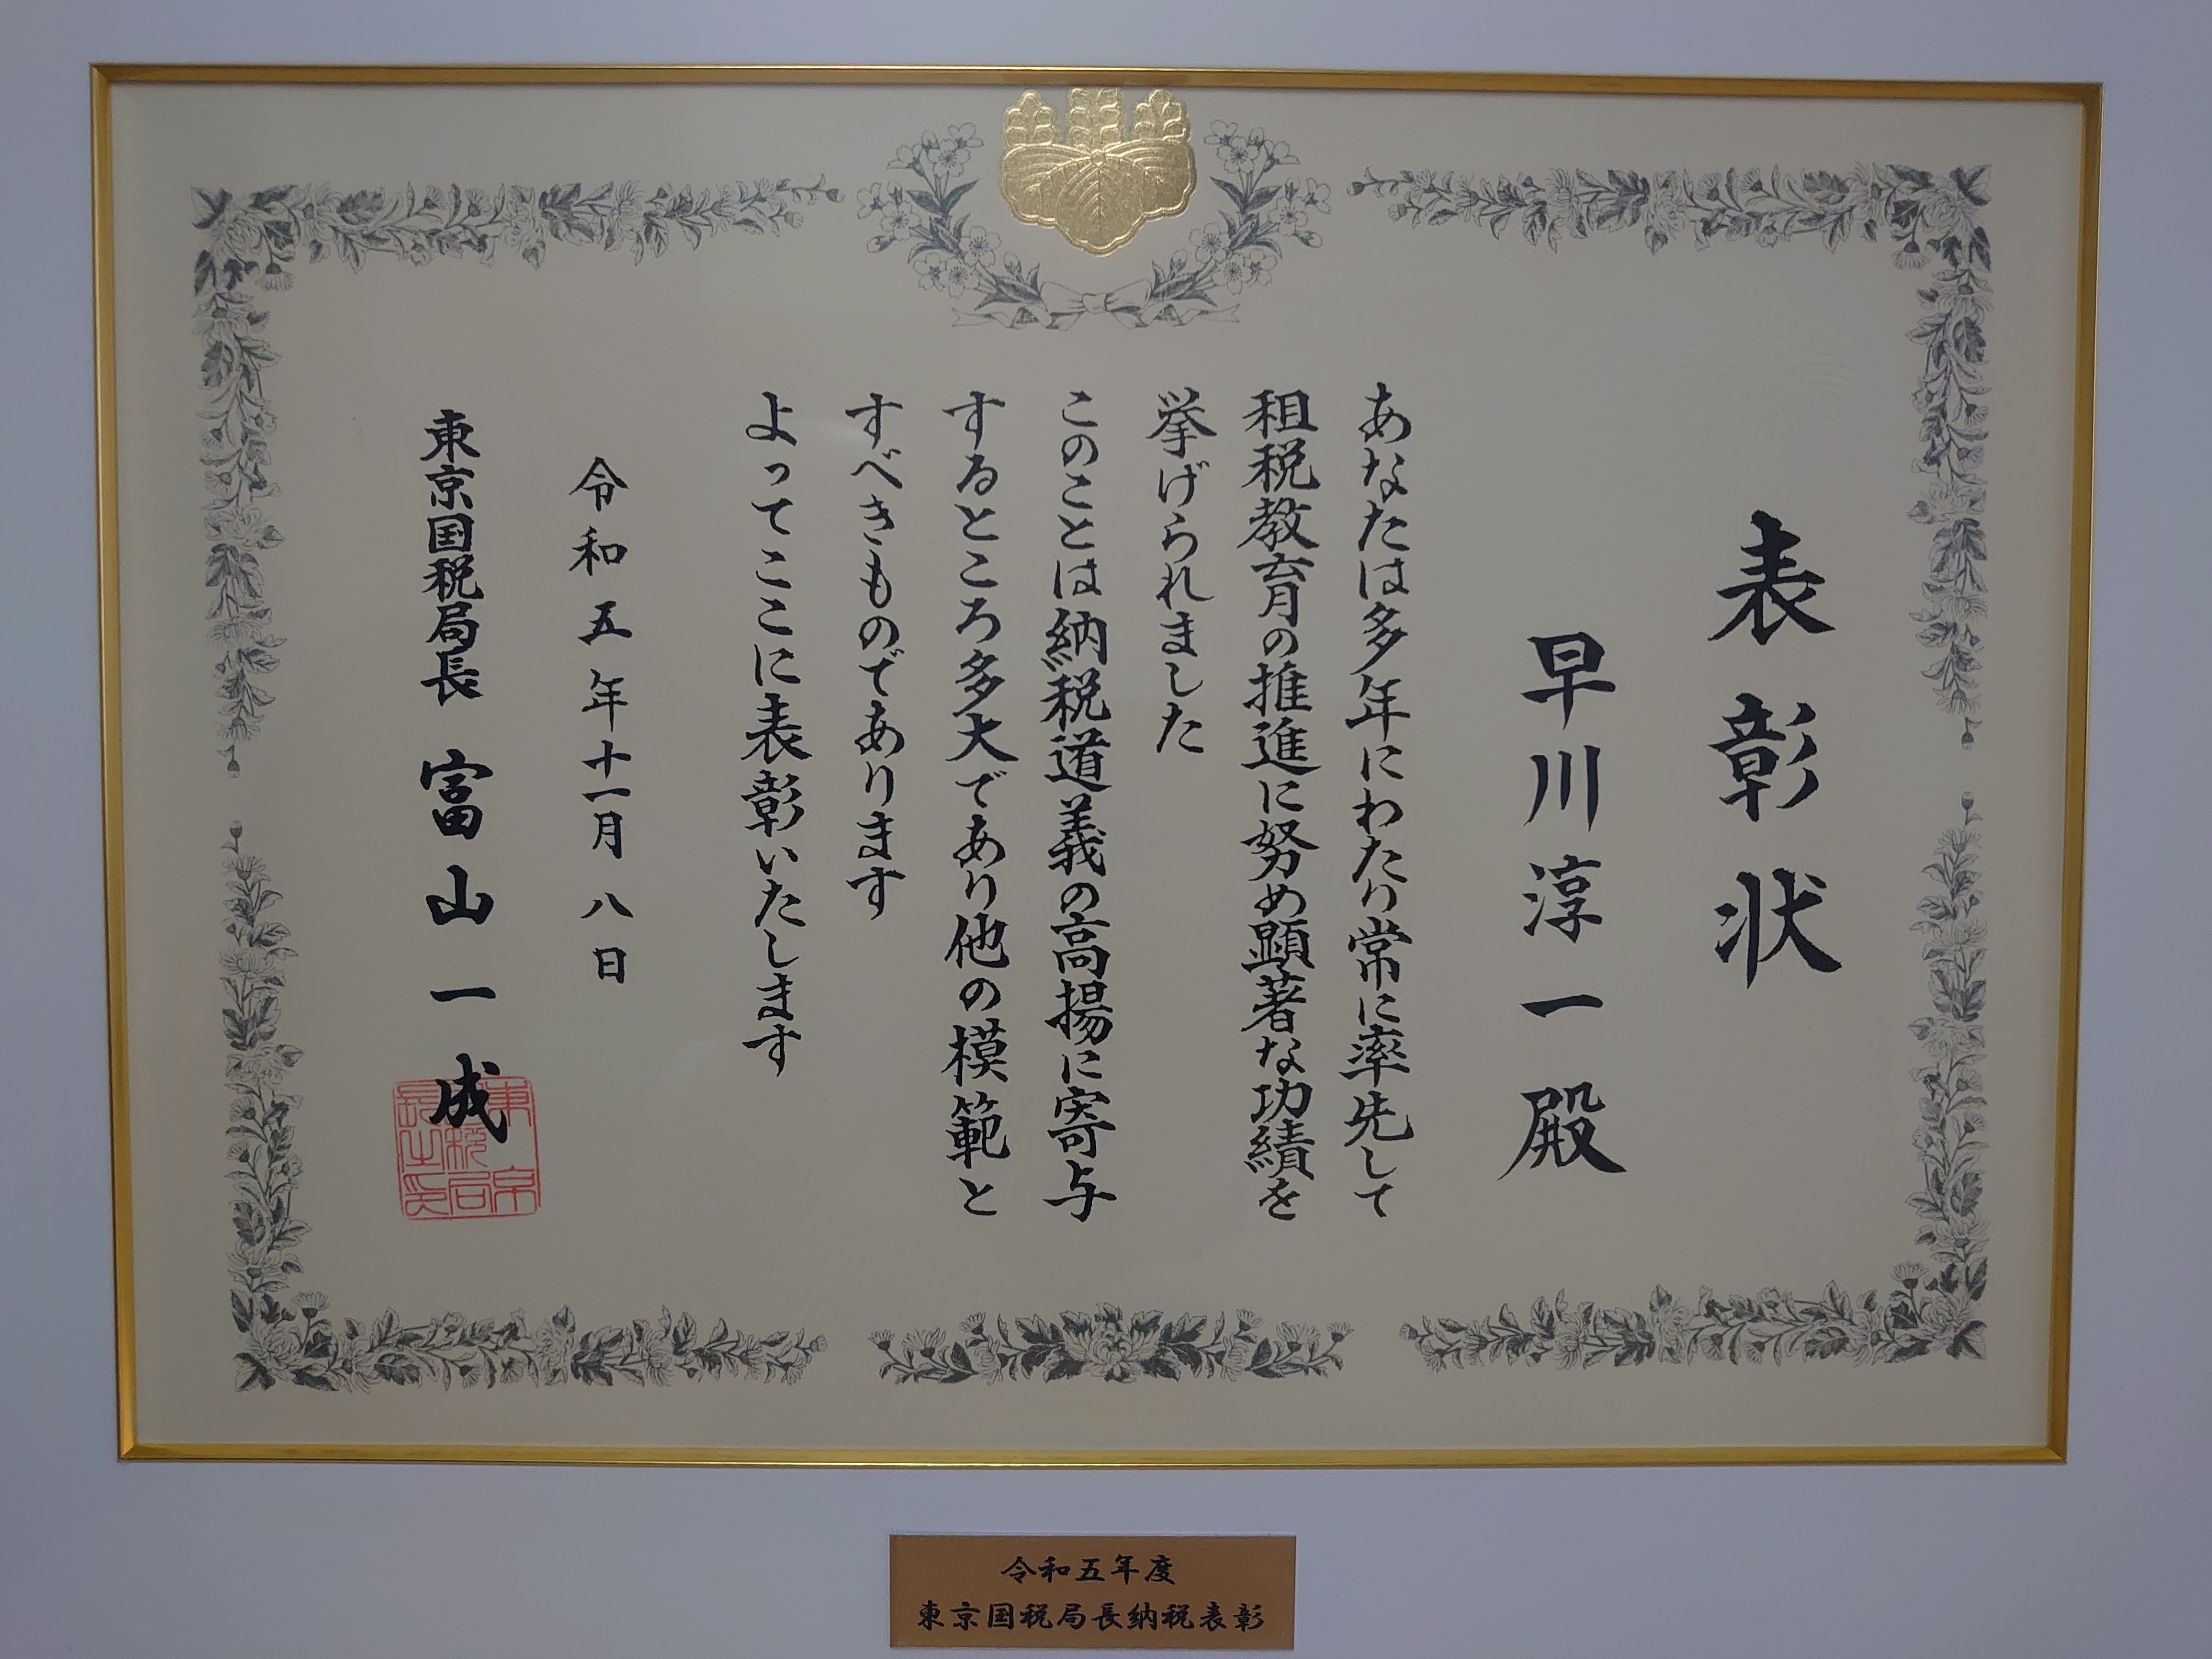 表彰状
早川淳一殿
あなたは多年にわたり常に率先して
租税教育の推進に努め顕著な功績を
挙げられました
このことは納税道義の高揚に寄与
するところ多大であり他の模範と
すべきものであります
よってここに表彰いたします
令和五年十一月八日
東京国税局長 富山一成
東京国税局長之印
令和五年度
東京国税局長納税表彰